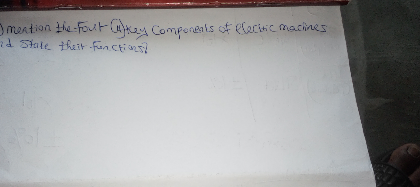 ) mention the Four (4) key Components of Electric macines
nd State their functions?